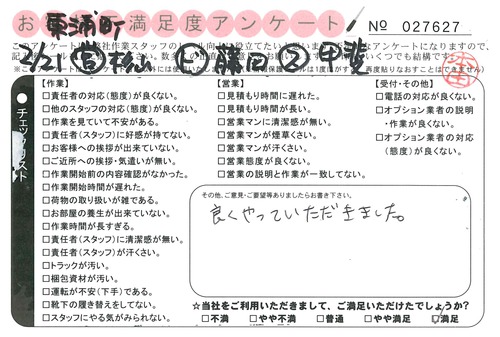 お客様満足度アンケート
東浦町
№ 027627
2/21 営 林 ① 藤田 ② 甲斐
チェックリスト
【作業】
□責任者の対応(態度)が良くない。
□他のスタッフの対応(態度)が良くない。
□作業を見ていて不安がある。
□責任者(スタッフ)に好感が持てない。
□お客様への挨拶が出来ていない。
□ご近所への挨拶・気遣いが無い。
□作業開始前の内容確認がなかった。
□作業開始時間が遅れた。
□荷物の取り扱いが雑である。
□お部屋の養生が出来ていない。
□作業時間が長すぎる。
□責任者(スタッフ)に清潔感が無い。
□責任者(スタッフ)が汗くさい。
□トラックが汚い。
□梱包資材が汚い。
□運転が不安(下手)である。
□靴下の履き替えをしてない。
□スタッフにやる気がみられない。
【営業】
□見積もり時間に遅れた。
□見積もり時間が長い。
□営業マンに清潔感が無い。
□営業マンが煙草くさい。
□営業マンが汗くさい。
□営業態度が良くない。
□営業の説明と作業が一致してない。
【受付・その他】
□電話の対応が良くない。
□オプション業者の説明
・作業が良くない。
□オプション業者の対応
(態度)が良くない。
その他、ご意見・ご要望等ありましたらお書き下さい。
良くやっていただきました。
☆当社をご利用いただきまして、ご満足いただけたでしょうか?
□不満 □やや不満 □普通 □やや満足 □満足